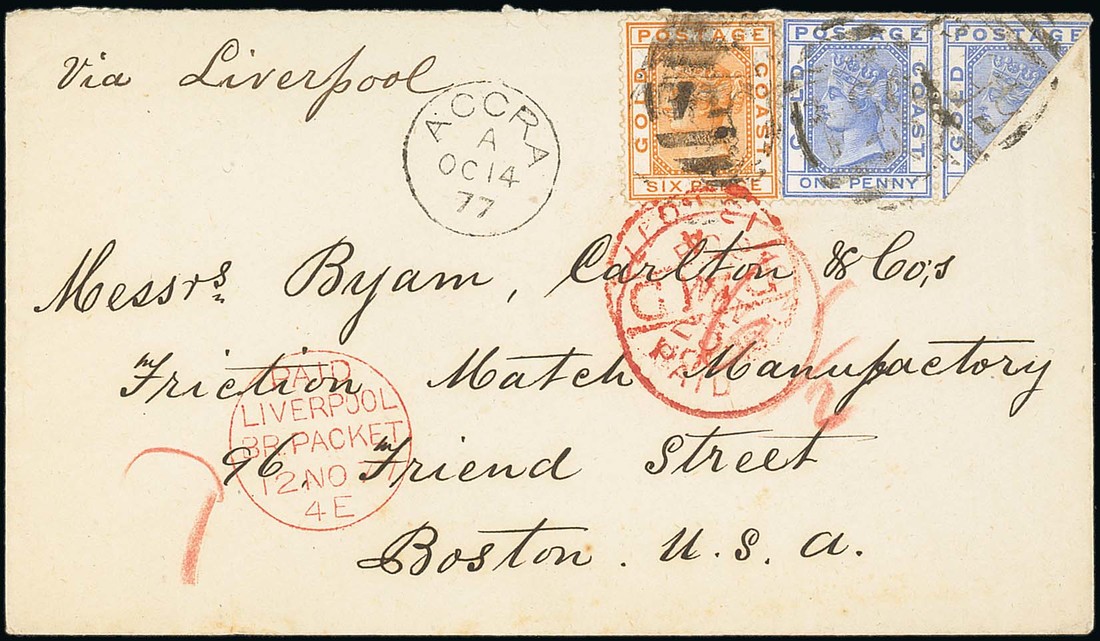 Via Liverpool
ACCRA
A
OC 14
77
POSTAGE
GOLD COAST.
SIX PENCE
POSTAGE
GOLD COAST
ONE PENNY
POSTAGE
GOLD
Messrs Byam, Carlton & Co;s
Friction Match Manufactory
96, Friend Street
Boston. U. S. a.
PAID
LIVERPOOL
BR. PACKET
12 NO 77
4 E
PAID
7